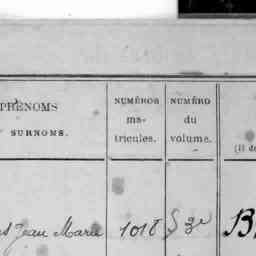 PRÉNOMS
SURNOMS.
NUMÉROS
ma-
tricules.
NUMÉRO
du
volume.
Jean Marie 1018 3e